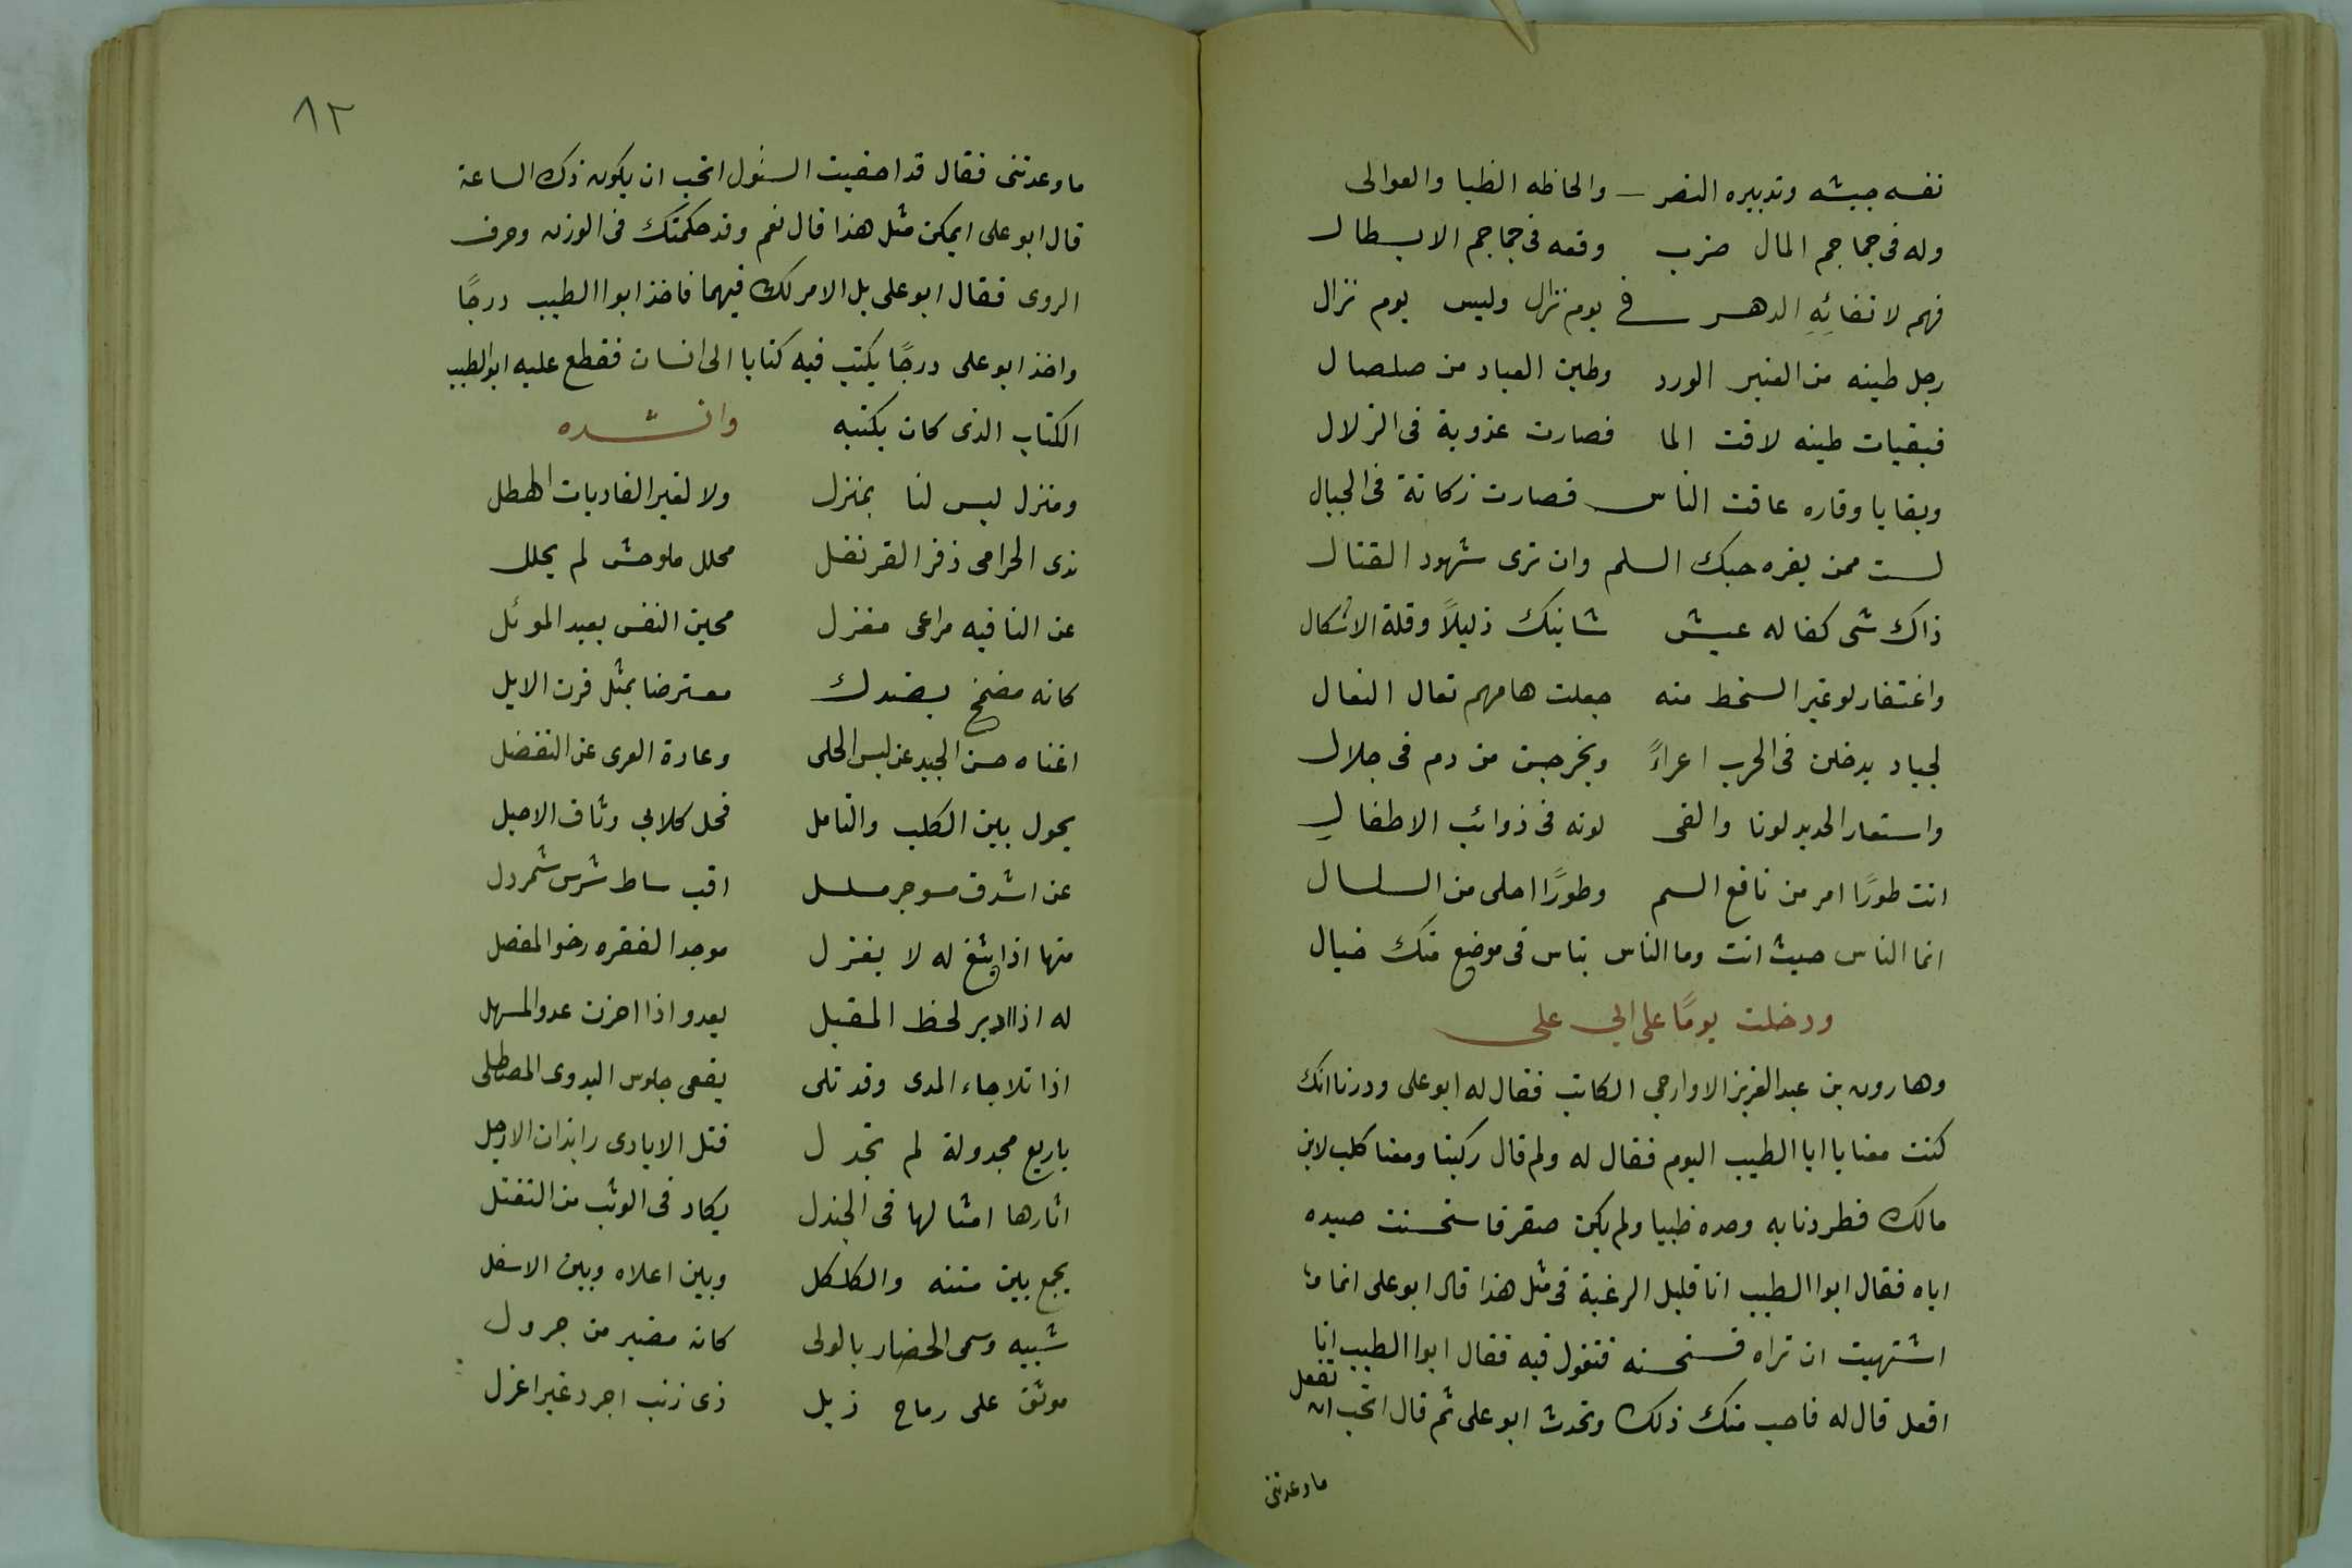 نفسه جيشه وتدبيره النصر والحاظه الظبا والعوالى
وله فى جماجم المال ضرب وقعه فى جماجم الابطال
فهم لاتقائه الدهر فى يوم نزال وليس يوم نزال
رجل طينه من العنبر الورد وطين العباد من صلصال
فبقيات طينه لاقت الما فصارت عذوبة فى الزلال
وبقايا وقاره عاقت الناس فصارت ركانة فى الجبال
لست ممن يغره حبك السلم وان ترى شهود القتال
ذاك شى كفا له عيش شانيك ذليلاً وقلة الاشكال
واغتفار لو غير السخط منه جعلت هامهم نعال النعال
لجياد يدخلن فى الحرب اعراءً ويخرجن من دم فى جلال
واستعار الحديد لونا والقى لونه فى ذوائب الاطفال
انت طورًا امر من ناقع السم وطورًا احلى من السلسال
انما الناس حيث انت وما الناس بناس فى موضع منك خيال
ودخلت يومًا على ابي على
وهارون بن عبد العزيز الاوارجي الكاتب فقال له ابو على وددنا انك
كنت معنا يا ابا الطيب اليوم فقال له ولم قال ركبنا ومعنا كلب لابن
مالك فطردنا به وحده ظبيا ولم يكن صقر فاستحسنت صيده
اياه فقال ابوا الطيب انا قليل الرغبة فى مثل هذا قال ابو على انما
اشتهيت ان تراه فتستحسنه فتقول فيه فقال ابوا الطيب انا
افعل قال له فاحب منك ذلك وتحدث ابو على ثم قال اتحب ان تفعل
ما وعدتنى
٨٢
ما وعدتنى فقال قد احفيت السئول اتحب ان يكون ذك الساعة
قال ابو على ايمكن مثل هذا قال نعم وقد حكمتك فى الوزن وحرف
الروى فقال ابو على بل الامر لك فيهما فاخذ ابوا الطيب درجًا
واخذ ابو على درجًا يكتب فيه كتابا الى انسان فقطع عليه ابو الطيب
الكتاب الذى كان يكتبه وانشده
ومنزل ليس لنا بمنزل ولا لغير الغاديات الهطل
ندى الخرامى ذفر القرنفل محلل ملوحش لم يحلل
عن النا فيه مراعى مغزل محين النفس بعيد الموئل
كانه مضمخ بصندل معترضا بمثل قرن الايل
اغناه حسن الجيد عن لبس الحلى وعادة العرى عن التفضل
يحول بين الكلب والتامل فحل كلابي وثاق الاحبل
عن اشدق مسوجر مسلسل اقب ساط شرس شمردل
منها اذا يثغ له لا يغزل موجد الفقره رخو المفصل
له اذا ادبر لحظ المقبل يعدو اذا احزن عدو المسهل
اذا تلا جاء المدى وقد تلى يقعى جلوس البدوى المصطلى
باربع مجدولة لم تجدل فتل الايادى رابذات الارجل
اثارها امثالها فى الجندل يكاد فى الوثب من التفتل
يجمع بين متنه والكلكل وبين اعلاه وبين الاسفل
شبيه وسمى الحضار بالولى كانه مضبر من جرول
موثق على رماح ذبل ذى ذنب اجرد غير اعزل